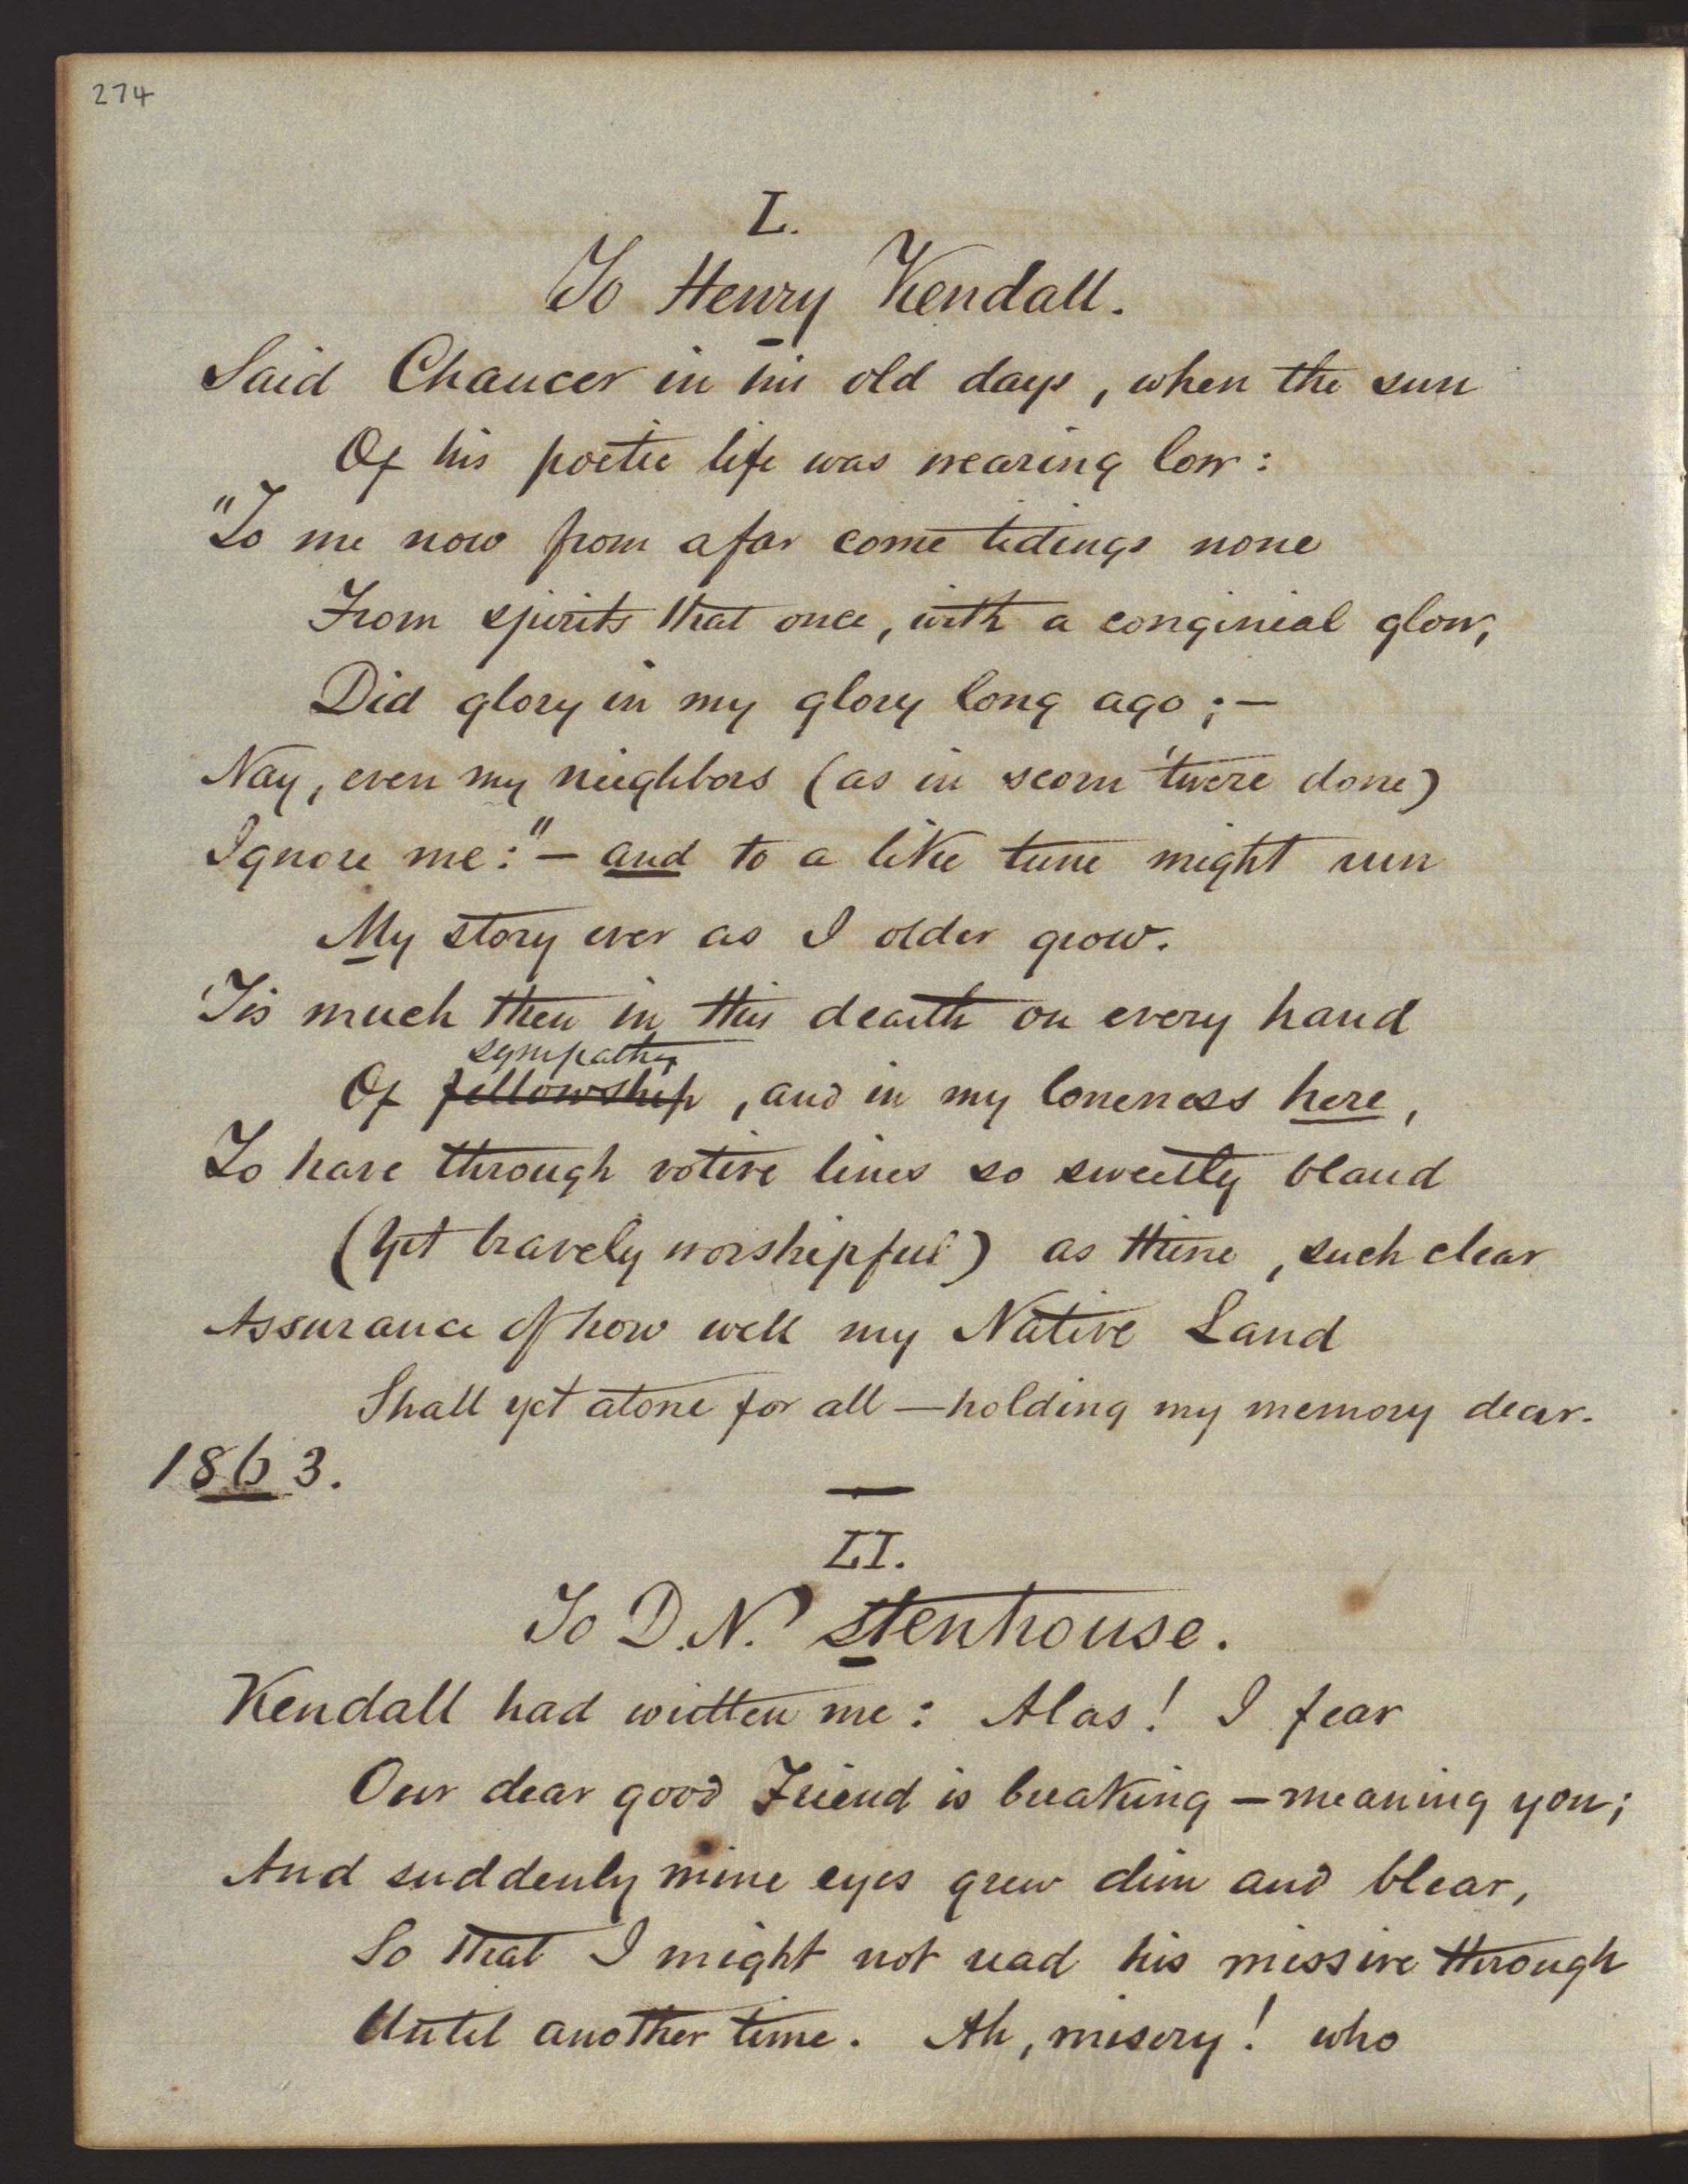 274
L.
To Henry Kendall.
Said Chaucer in his old days, when the sun
Of his poetic life was nearing low:
"To me now from afar come tidings none
From spirits that once, with a conginial glow,
Did glory in my glory long ago;—
Nay, even my neighbors (as in scorn 'twere done)
Ignore me:"— and to a like tune might run
My story ever as I older grow.
'Tis much then in this dearth on every hand
sympathy
Of fellowship, and in my loneness here,
To have through votive lines so sweetly bland
(Yet bravely worshipful) as thine, such clear
Assurance of how well my Native Land
Shall yet atone for all —holding my memory dear.
1863.
LI.
To D.N. Stenhouse.
Kendall had written me: Alas! I fear
Our dear good Friend is breaking — meaning you;
And suddenly mine eyes grew dim and blear,
So that I might not read his missive through
Until another time. Ah, misery! who